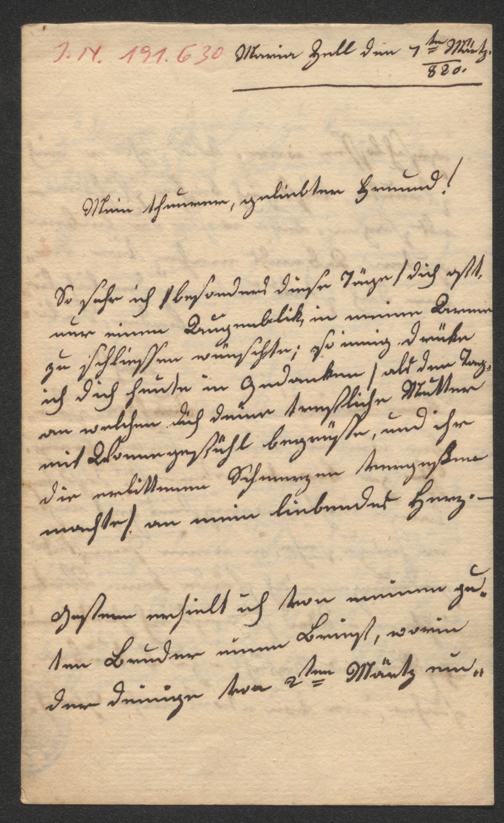 J. N. 191.630 Maria Zell den 7ten Märtz.
820.
Mein theurer, geliebter Freund!
So sehr ich /besonders diese Täge/ dich oft,
nur einen Augenblik in meine Arme
zu schliessen wünschte; so innig drücke
ich dich heute in Gedanken / als den Tag,
an welchen dich deine treffliche Mutter
mit Wonnegefühl begrüsste, und ihr
die erlittenen Schmerzen vergessen
machte/ an mein liebendes Herz. —
Gestern erhielt ich von meinem gu-
ten Bruder einen Brief, worin
der deinige von 2ten Märtz ein-